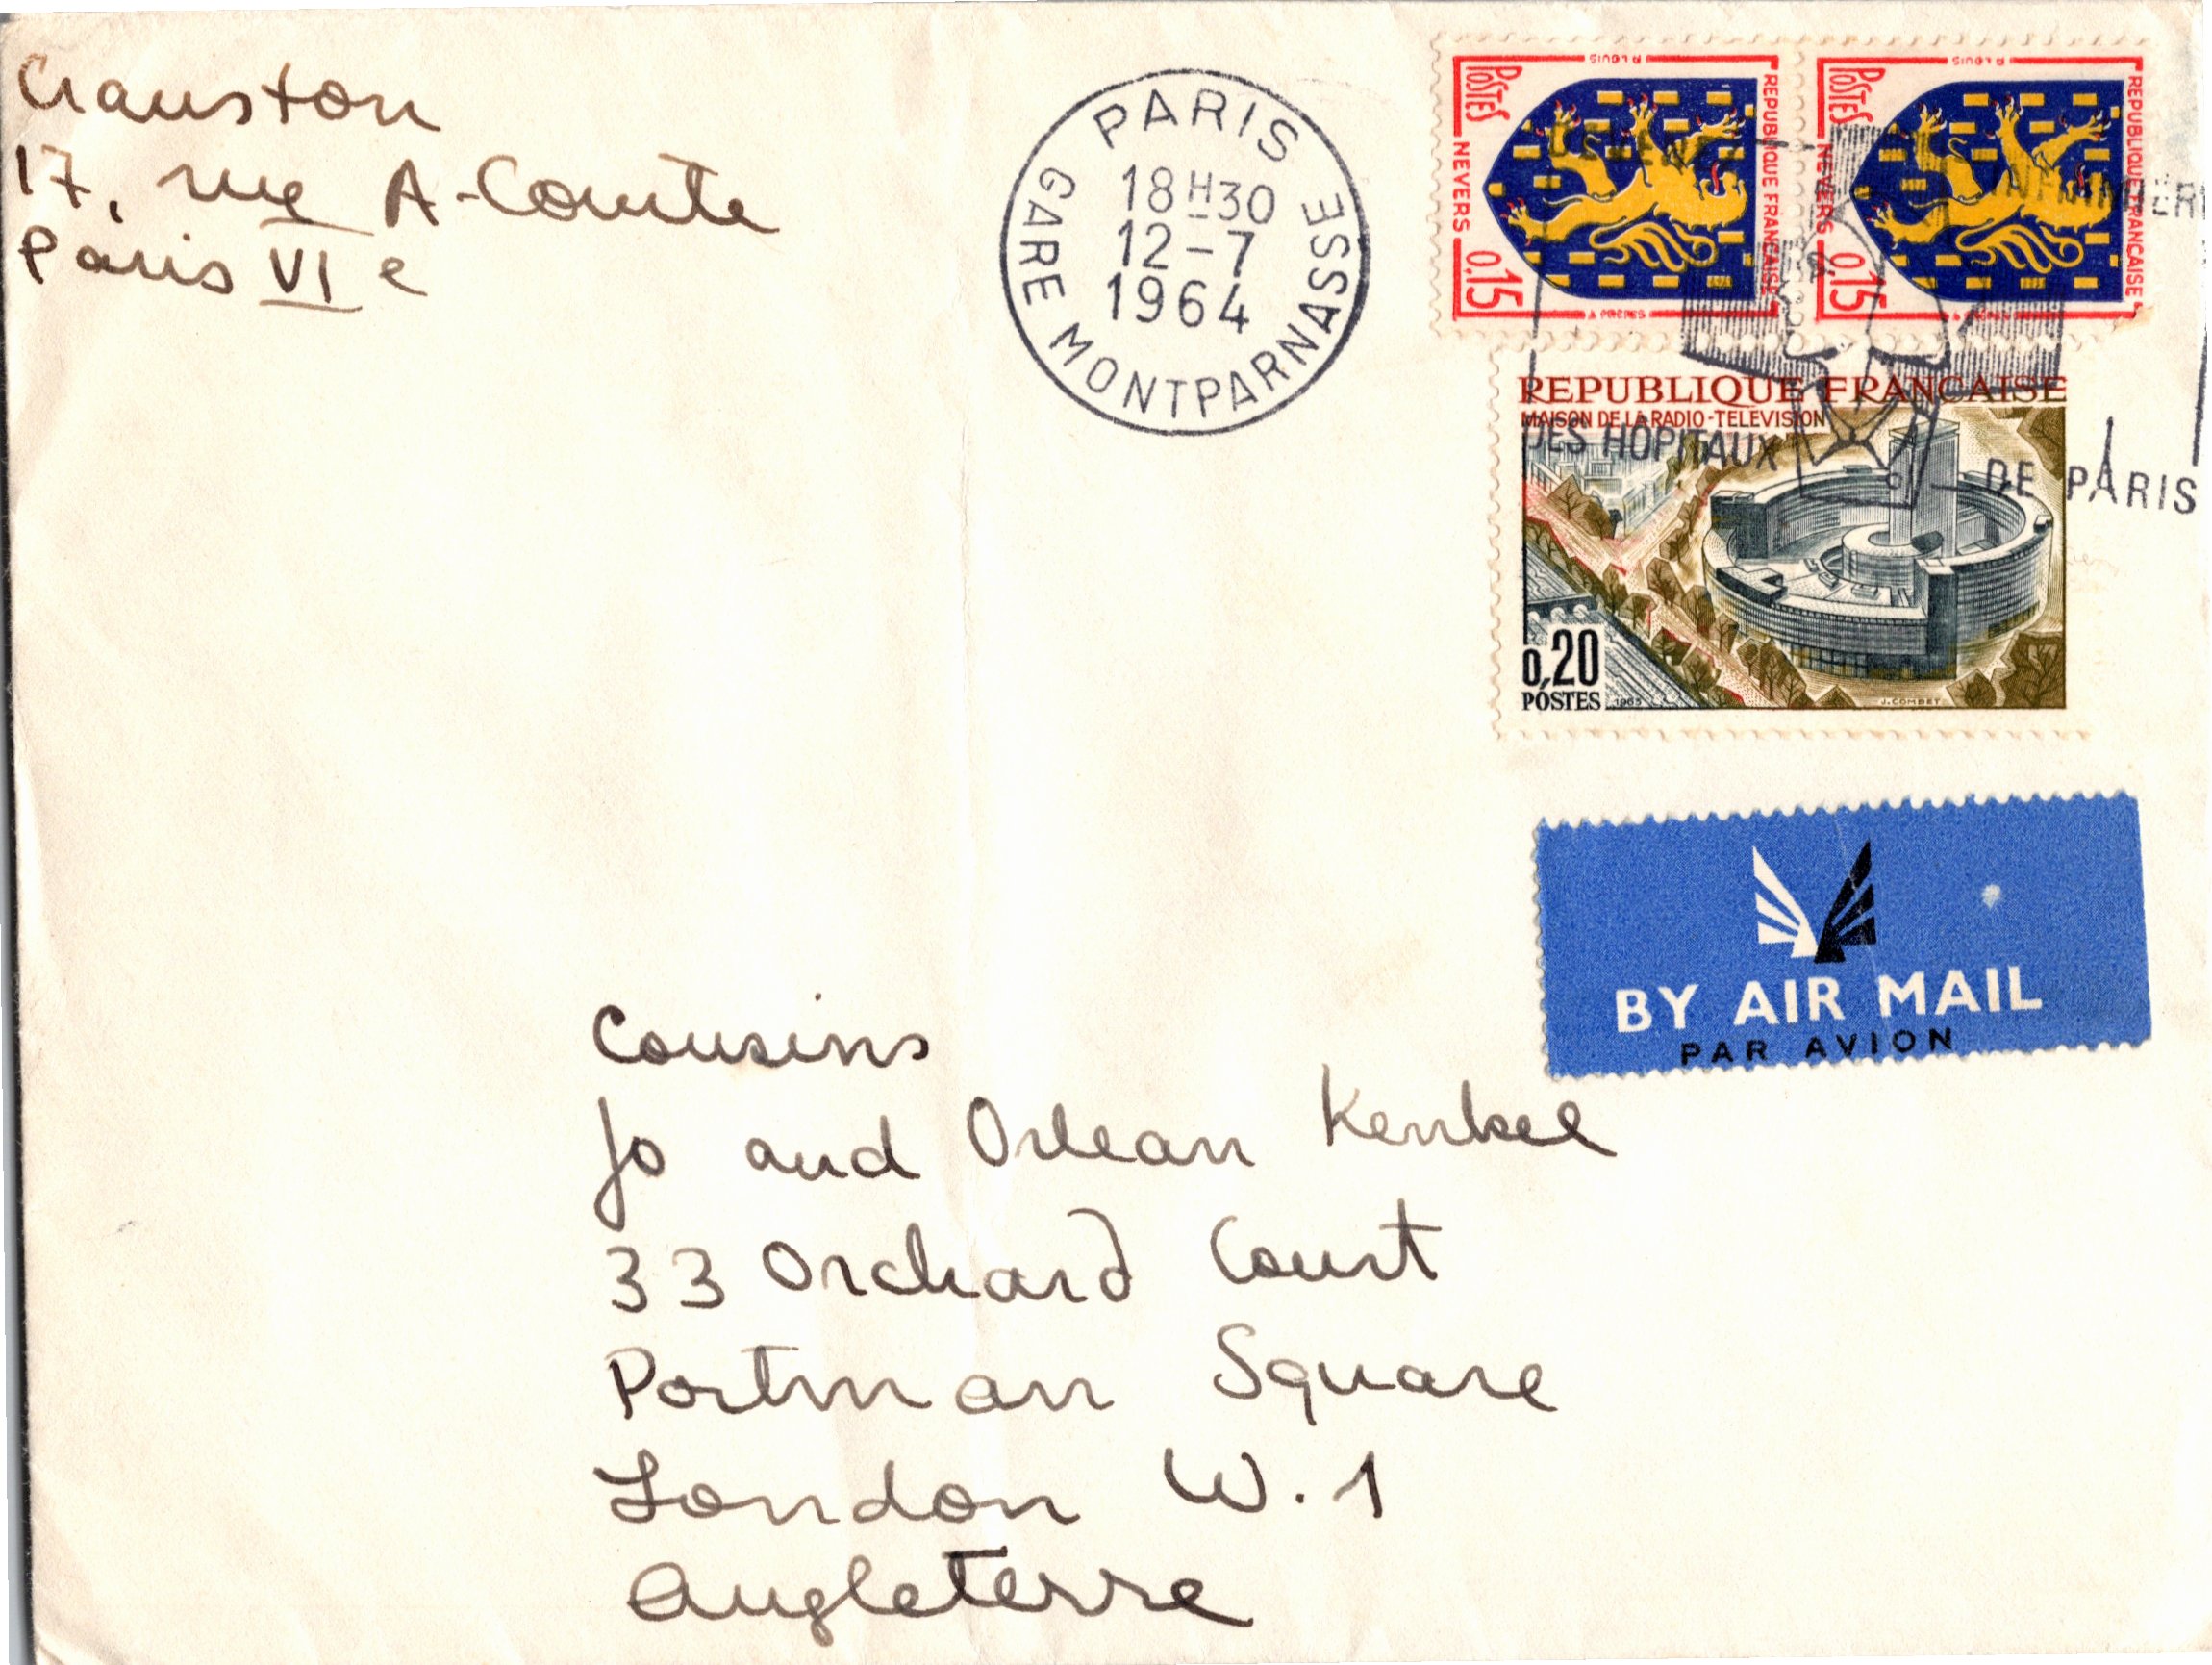 17, rue A-Comte
Paris VI e
PARIS
18H30
12-7
1964
GARE MONTPARNASSE
POSTES
NEVERS
0.15
REPUBLIQUE FRANCAISE
POSTES
NEVERS
0.15
REPUBLIQUE FRANCAISE
DEVENEZ
INFIRMIERE
DES HOPITAUX
DE PARIS
REPUBLIQUE FRANCAISE
MAISON DE LA RADIO-TELEVISION
0,20
POSTES
1963
J. COMBET
BY AIR MAIL
PAR AVION
Cousins
Jo and Orlean
33 Orchard Court
Portman Square
London W.1
Angleterre